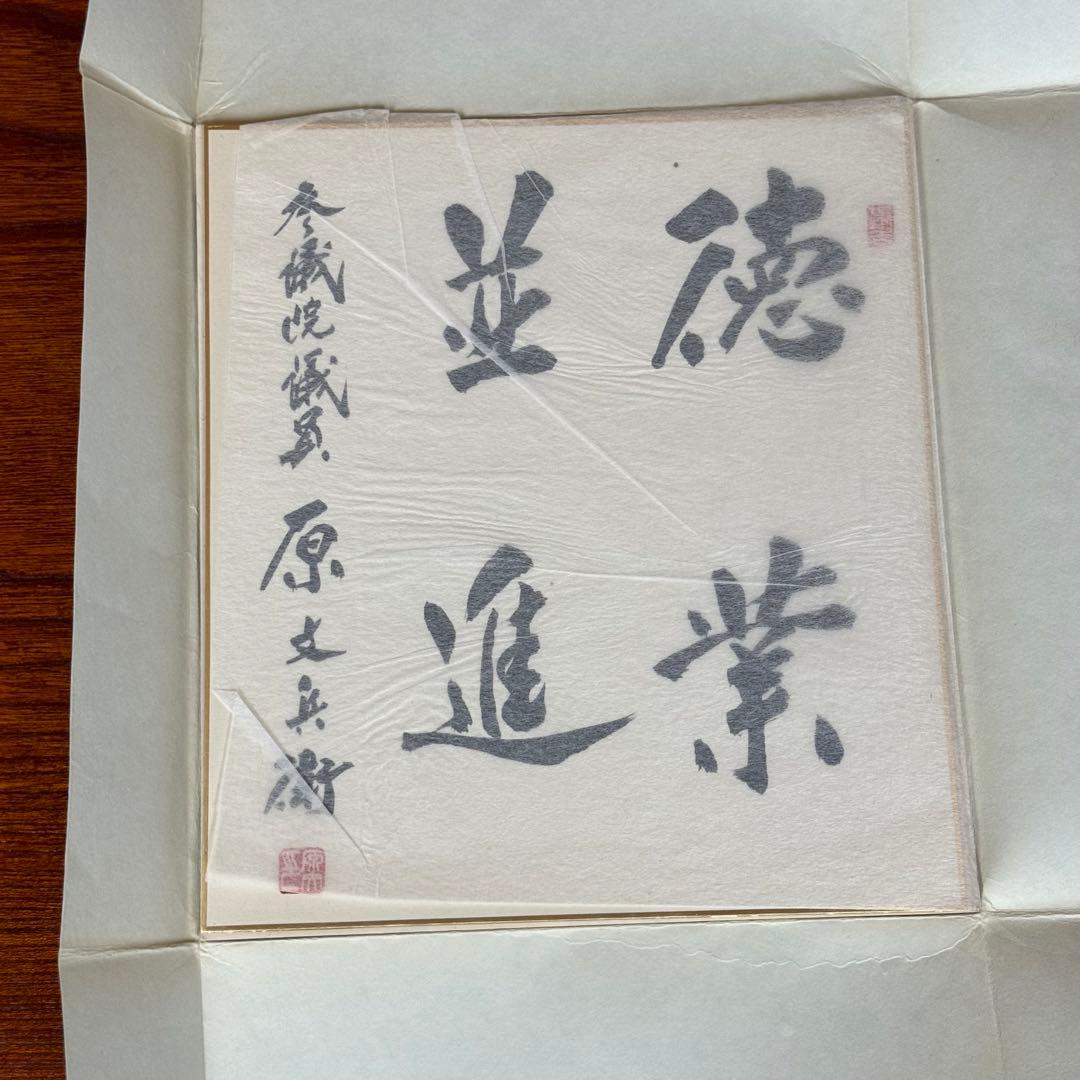 德業
並進
参議院議員 原文兵衛